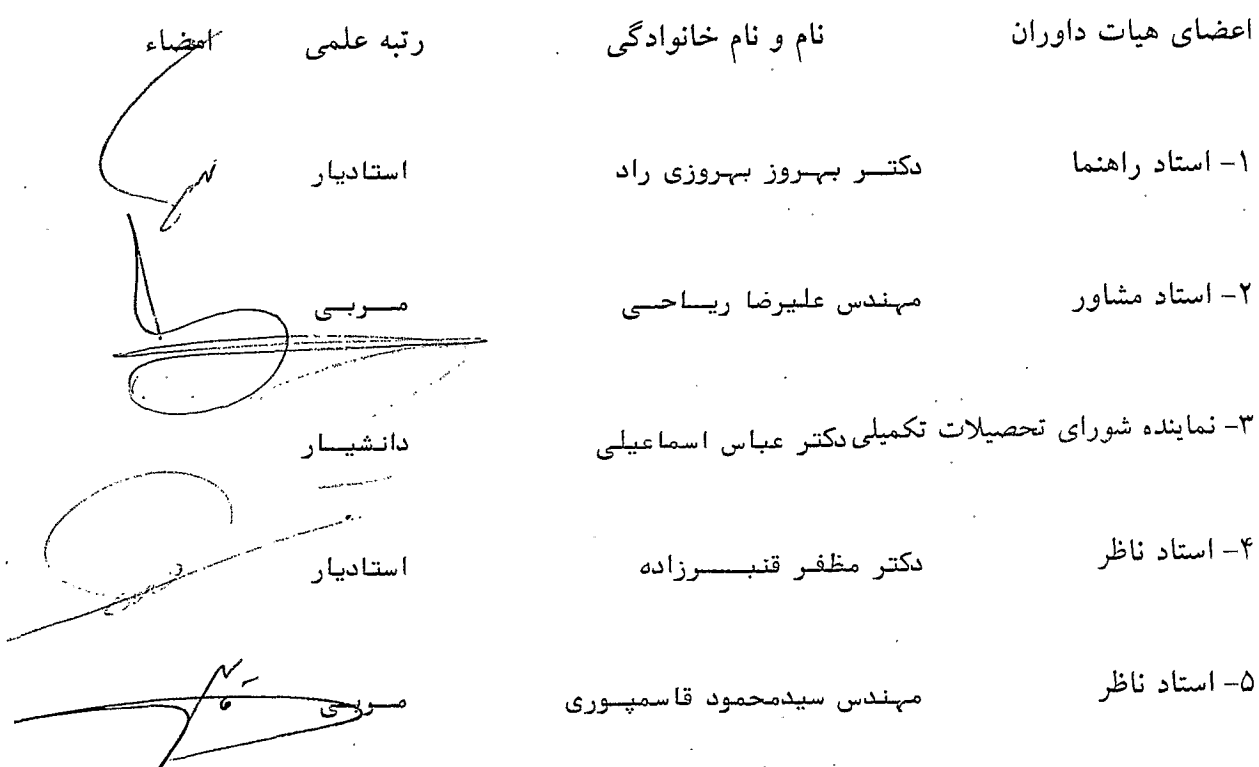 اعضای هیات داوران نام و نام خانوادگی رتبه علمی امضاء
۱- استاد راهنما دکتر بهروز بهروزی راد استادیار
۲- استاد مشاور مهندس علیرضا ریاحی مربی
۳- نماینده شورای تحصیلات تکمیلی دکتر عباس اسماعیلی دانشیار
۴- استاد ناظر دکتر مظفر قنبرزاده استادیار
۵- استاد ناظر مهندس سیدمحمود قاسمپوری مربی